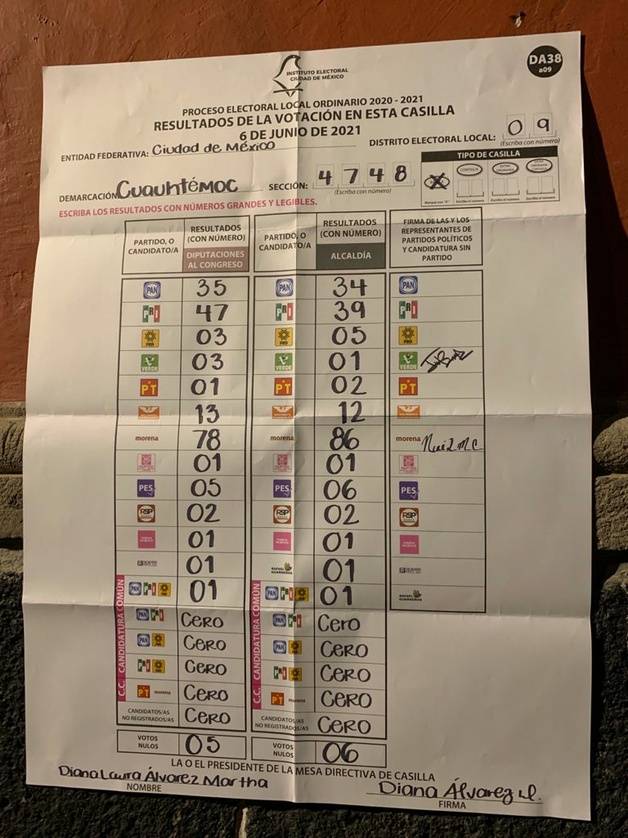 INSTITUTO ELECTORAL
CIUDAD DE MÉXICO
DA38
a09
PROCESO ELECTORAL LOCAL ORDINARIO 2020 - 2021
RESULTADOS DE LA VOTACIÓN EN ESTA CASILLA
6 DE JUNIO DE 2021
ENTIDAD FEDERATIVA: Ciudad de México
DISTRITO ELECTORAL LOCAL: 0 9
(Escriba con número)
DEMARCACIÓN: Cuauhtémoc SECCIÓN: 4 7 4 8
(Escriba con número)
TIPO DE CASILLA
ESCRIBA LOS RESULTADOS CON NÚMEROS GRANDES Y LEGIBLES.
PARTIDO, O CANDIDATO/A RESULTADOS (CON NÚMERO) DIPUTACIONES AL CONGRESO PARTIDO, O CANDIDATO/A RESULTADOS (CON NÚMERO) ALCALDÍA FIRMA DE LAS Y LOS REPRESENTANTES DE PARTIDOS POLÍTICOS Y CANDIDATURA SIN PARTIDO
PAN 35 PAN 34 PAN
PRI 47 PRI 39 PRI
PRD 03 PRD 05 PRD
VERDE 03 VERDE 01 VERDE
PT 01 PT 02 PT
13 12
morena 78 morena 86 morena
01 01
PES 05 PES 06 PES
RSP 02 RSP 02 RSP
01 01
01 01
C.C. CANDIDATURA COMÚN
PAN PRI PRD 01 PAN PRI PRD 01
PAN PRI CERO PAN PRI Cero
PAN PRD CERO PAN PRD CERO
PRI PRD CERO PRI PRD CERO
PT morena CERO PT morena CERO
CANDIDATOS/AS NO REGISTRADOS/AS CERO CANDIDATOS/AS NO REGISTRADOS/AS CERO
C.C. CANDIDATURA COMÚN
VOTOS NULOS 05 VOTOS NULOS 06
LA O EL PRESIDENTE DE LA MESA DIRECTIVA DE CASILLA
Diana Laura Álvarez Martha
NOMBRE
Diana Álvarez
FIRMA